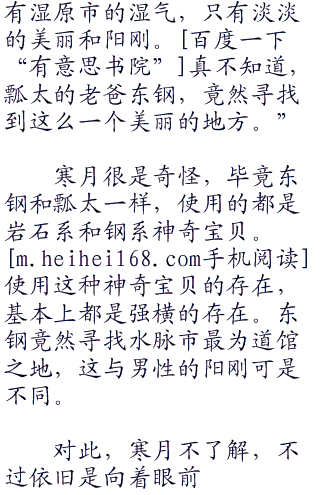 有湿原市的湿气，只有淡淡
的美丽和阳刚。[百度一下
“有意思书院”]真不知道，
瓢太的老爸东钢，竟然寻找
到这么一个美丽的地方。”
寒月很是奇怪，毕竟东
钢和瓢太一样，使用的都是
岩石系和钢系神奇宝贝。
[m.heihei168.com手机阅读]
使用这种神奇宝贝的存在，
基本上都是强横的存在。东
钢竟然寻找水脉市最为道馆
之地，这与男性的阳刚可是
不同。
对此，寒月不了解，不
过依旧是向着眼前